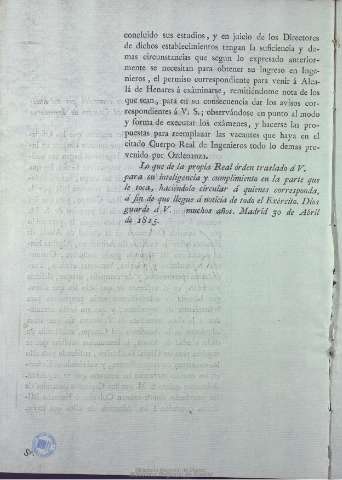 concluido sus estudios, y en juicio de los Directores
de dichos establecimientos tengan la suficiencia y de-
mas circunstancias que segun lo expresado anterior-
mente se necesitan para obtener su ingreso en Inge-
nieros, el permiso correspondiente para venir á Alca-
lá de Henares á exâminarse, remitiéndome nota de los
que sean, para en su consecuencia dar los avisos cor-
respondientes á V. S.; observándose en punto al modo
y forma de executar los exâmenes, y hacerse las pro-
puestas para reemplazar las vacantes que haya en el
citado Cuerpo Real de Ingenieros todo lo demas pre-
venido por Ordenanza.
Lo que de la propia Real órden traslado á V.
para su inteligencia y cumplimiento en la parte que
le toca, haciéndolo circular á quienes corresponda,
á fin de que llegue á noticia de todo el Exército. Dios
guarde á V. muchos años. Madrid 30 de Abril
de 1815.
Sr.